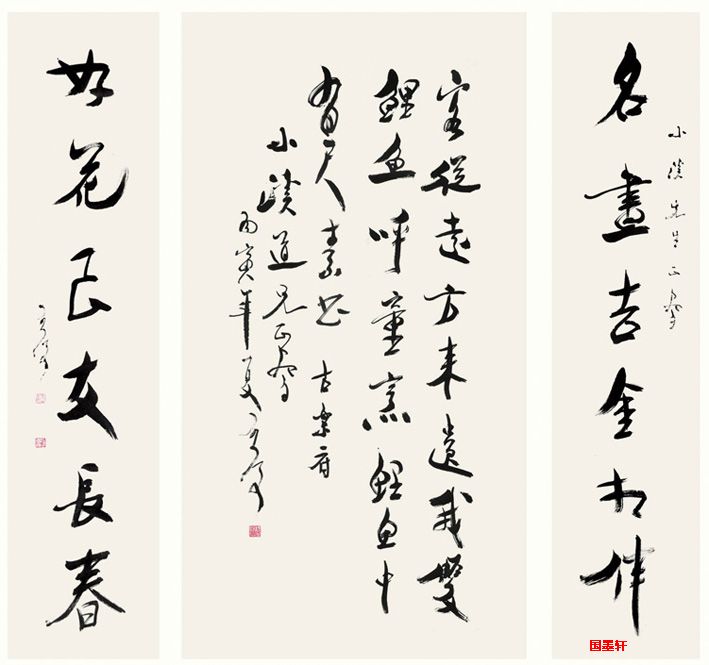 小 先生正
名畫吉金相伴
客從遠方來遺我雙
鯉魚呼童烹鯉魚中
有尺素書 古樂府
小 道兄正
丙寅年夏
好花良友長春
国墨轩